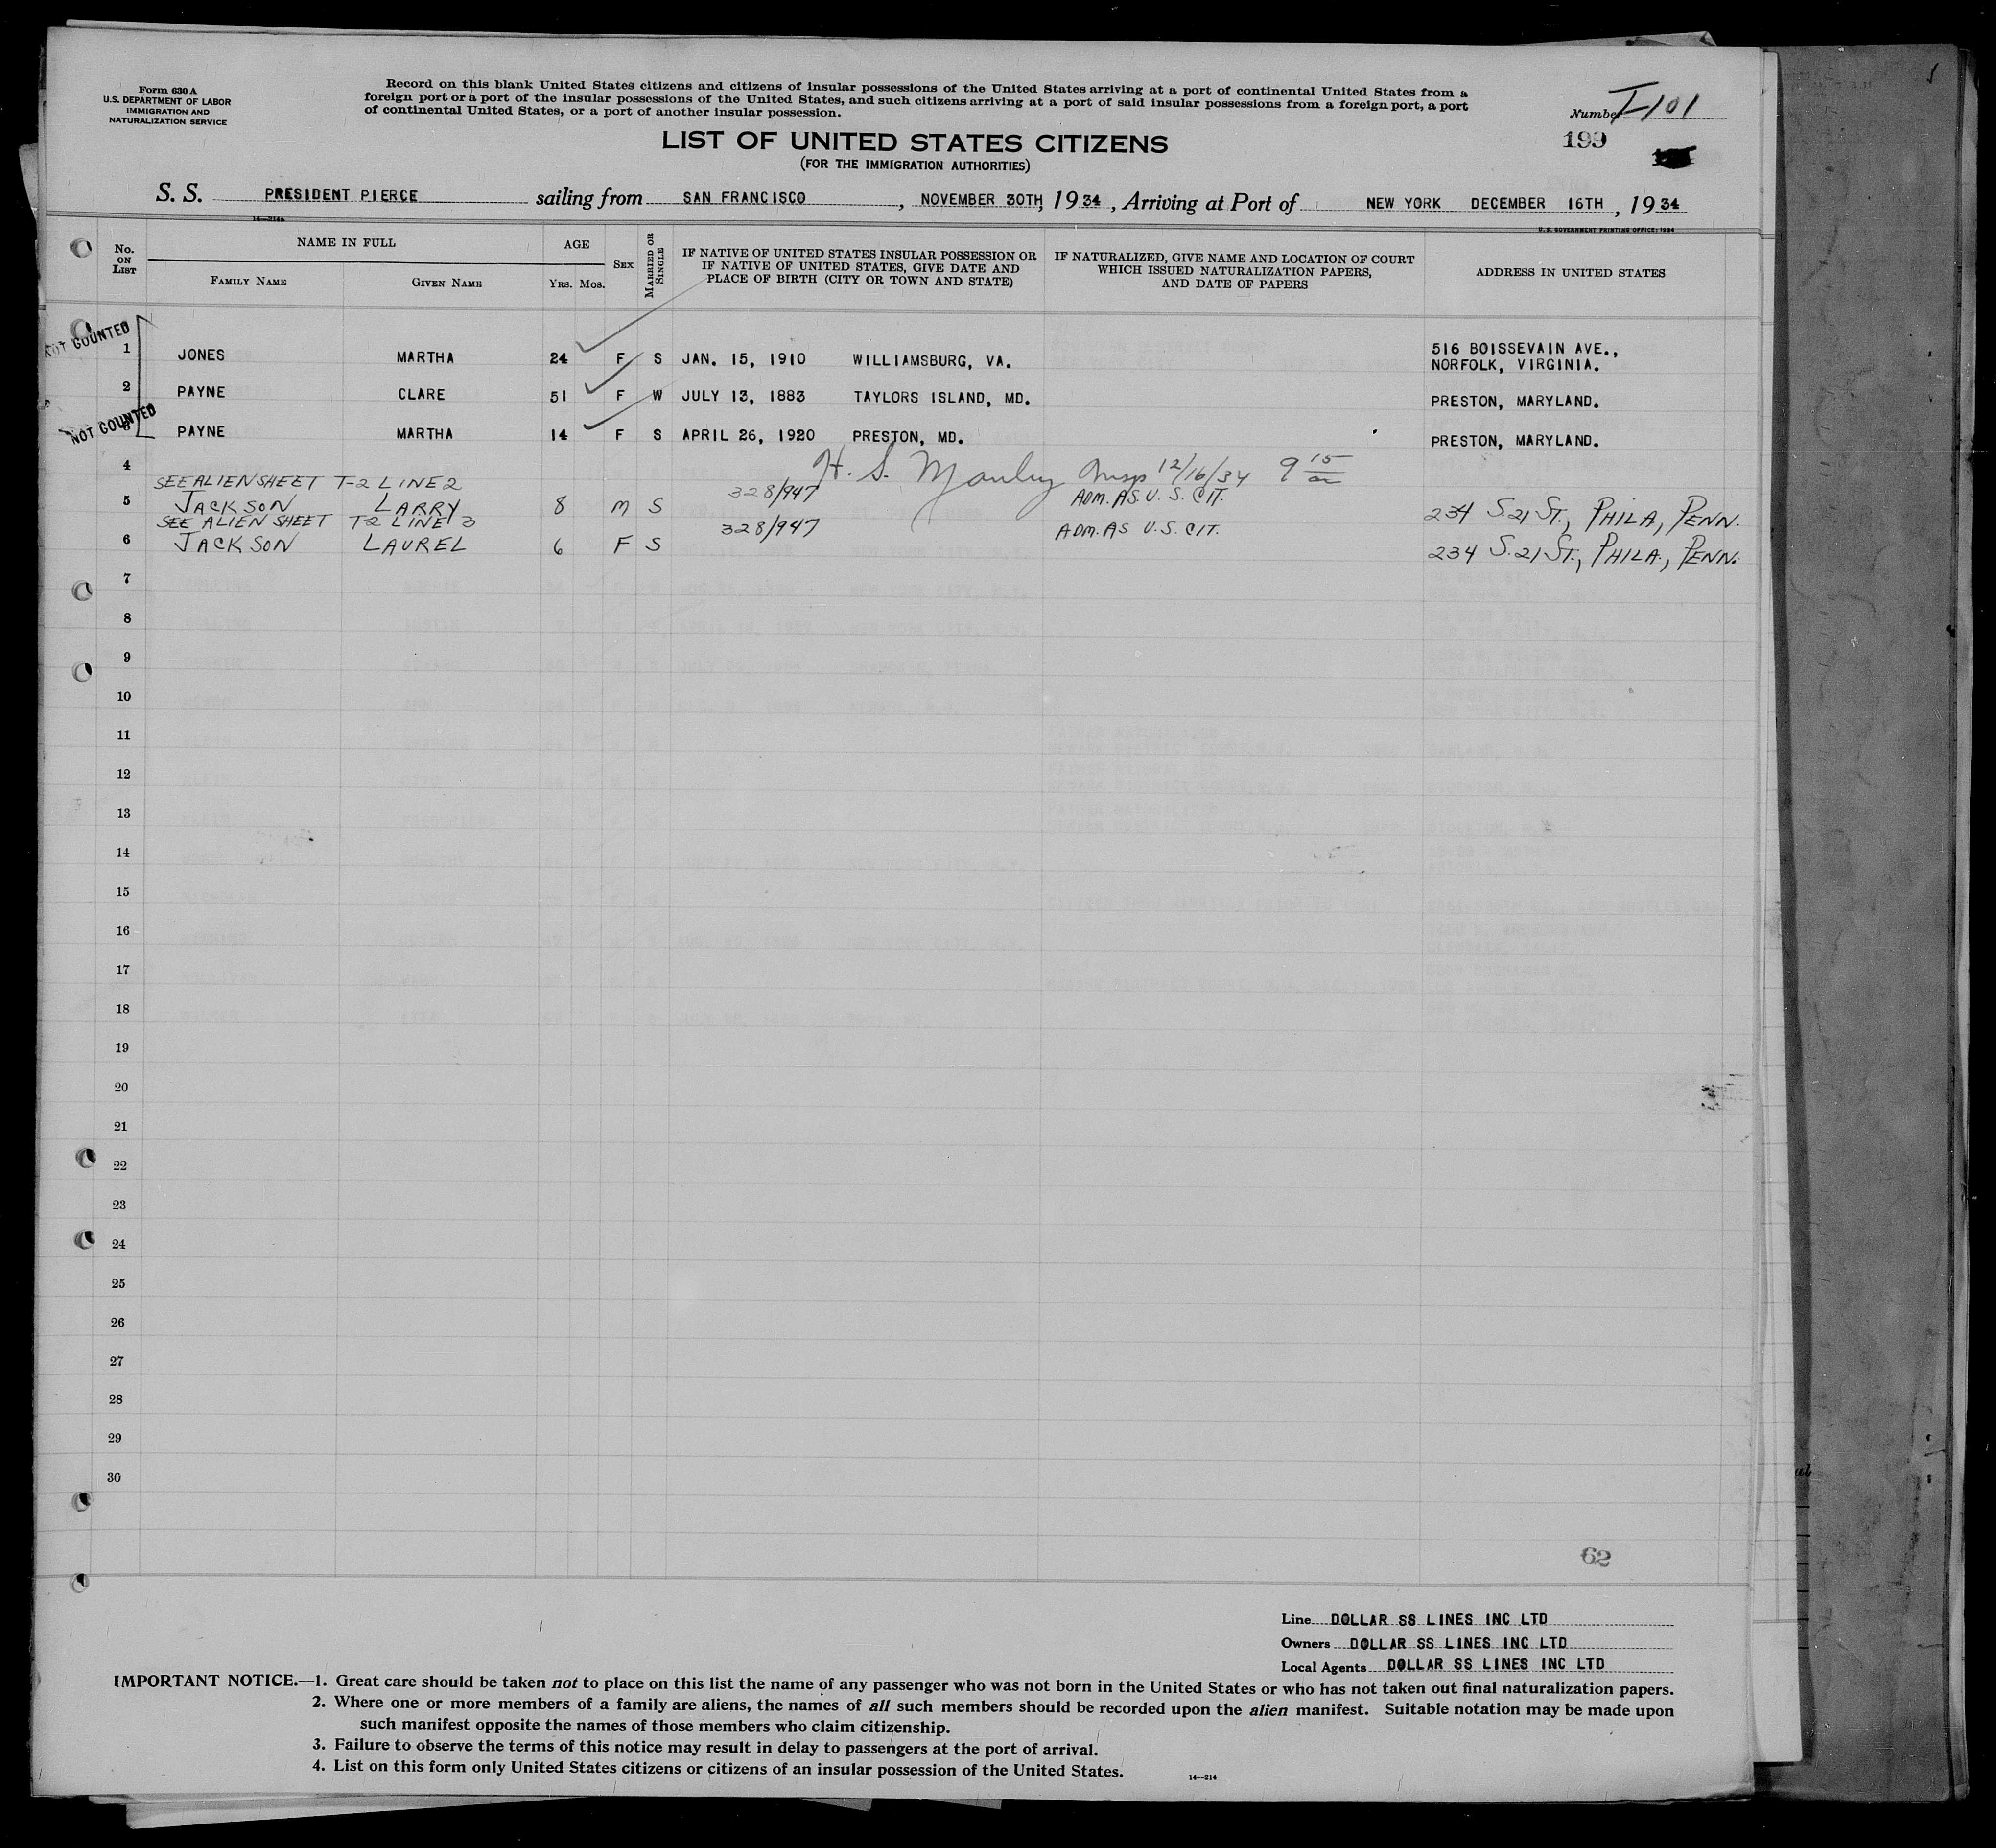 Form 630 A
U.S. DEPARTMENT OF LABOR
IMMIGRATION AND
NATURALIZATION SERVICE
Record on this blank United States citizens and citizens of insular possessions of the United States arriving at a port of continental United States from a
foreign port or a port of the insular possessions of the United States, and such citizens arriving at a port of said insular possessions from a foreign port, a port
of continental United States, or a port of another insular possession.
Number I-101
199
LIST OF UNITED STATES CITIZENS
(FOR THE IMMIGRATION AUTHORITIES)
S. S. PRESIDENT PIERCE sailing from SAN FRANCISCO, NOVEMBER 30TH, 1934, Arriving at Port of NEW YORK DECEMBER 16TH, 1934
U. S. GOVERNMENT PRINTING OFFICE: 1934
No. ON LIST
NAME IN FULL
FAMILY NAME GIVEN NAME
AGE
YRS. MOS.
SEX
MARRIED OR SINGLE
IF NATIVE OF UNITED STATES INSULAR POSSESSION OR
IF NATIVE OF UNITED STATES, GIVE DATE AND
PLACE OF BIRTH (CITY OR TOWN AND STATE)
IF NATURALIZED, GIVE NAME AND LOCATION OF COURT
WHICH ISSUED NATURALIZATION PAPERS,
AND DATE OF PAPERS
ADDRESS IN UNITED STATES
NOT COUNTED
1 JONES MARTHA 24 F S JAN. 15, 1910 WILLIAMSBURG, VA. 516 BOISSEVAIN AVE.,
NORFOLK, VIRGINIA.
2 PAYNE CLARE 51 F W JULY 13, 1883 TAYLORS ISLAND, MD. PRESTON, MARYLAND.
NOT COUNTED
3 PAYNE MARTHA 14 F S APRIL 26, 1920 PRESTON, MD. PRESTON, MARYLAND.
4 H. S. Manley Insp 12/16/34 9 15 am
SEE ALIEN SHEET T-2 LINE 2 328/947 ADM. AS U. S. CIT.
5 JACKSON LARRY 8 M S 234 S. 21 ST., PHILA, PENN.
SEE ALIEN SHEET T2 LINE 3 328/947 ADM. AS U.S. CIT.
6 JACKSON LAUREL 6 F S 234 S. 21 ST., PHILA., PENN.
7
8
9
10
11
12
13
14
15
16
17
18
19
20
21
22
23
24
25
26
27
28
29
30
62
Line DOLLAR SS LINES INC LTD
Owners DOLLAR SS LINES INC LTD
Local Agents DOLLAR SS LINES INC LTD
IMPORTANT NOTICE.—1. Great care should be taken not to place on this list the name of any passenger who was not born in the United States or who has not taken out final naturalization papers.
2. Where one or more members of a family are aliens, the names of all such members should be recorded upon the alien manifest. Suitable notation may be made upon
such manifest opposite the names of those members who claim citizenship.
3. Failure to observe the terms of this notice may result in delay to passengers at the port of arrival.
4. List on this form only United States citizens or citizens of an insular possession of the United States.
14—214